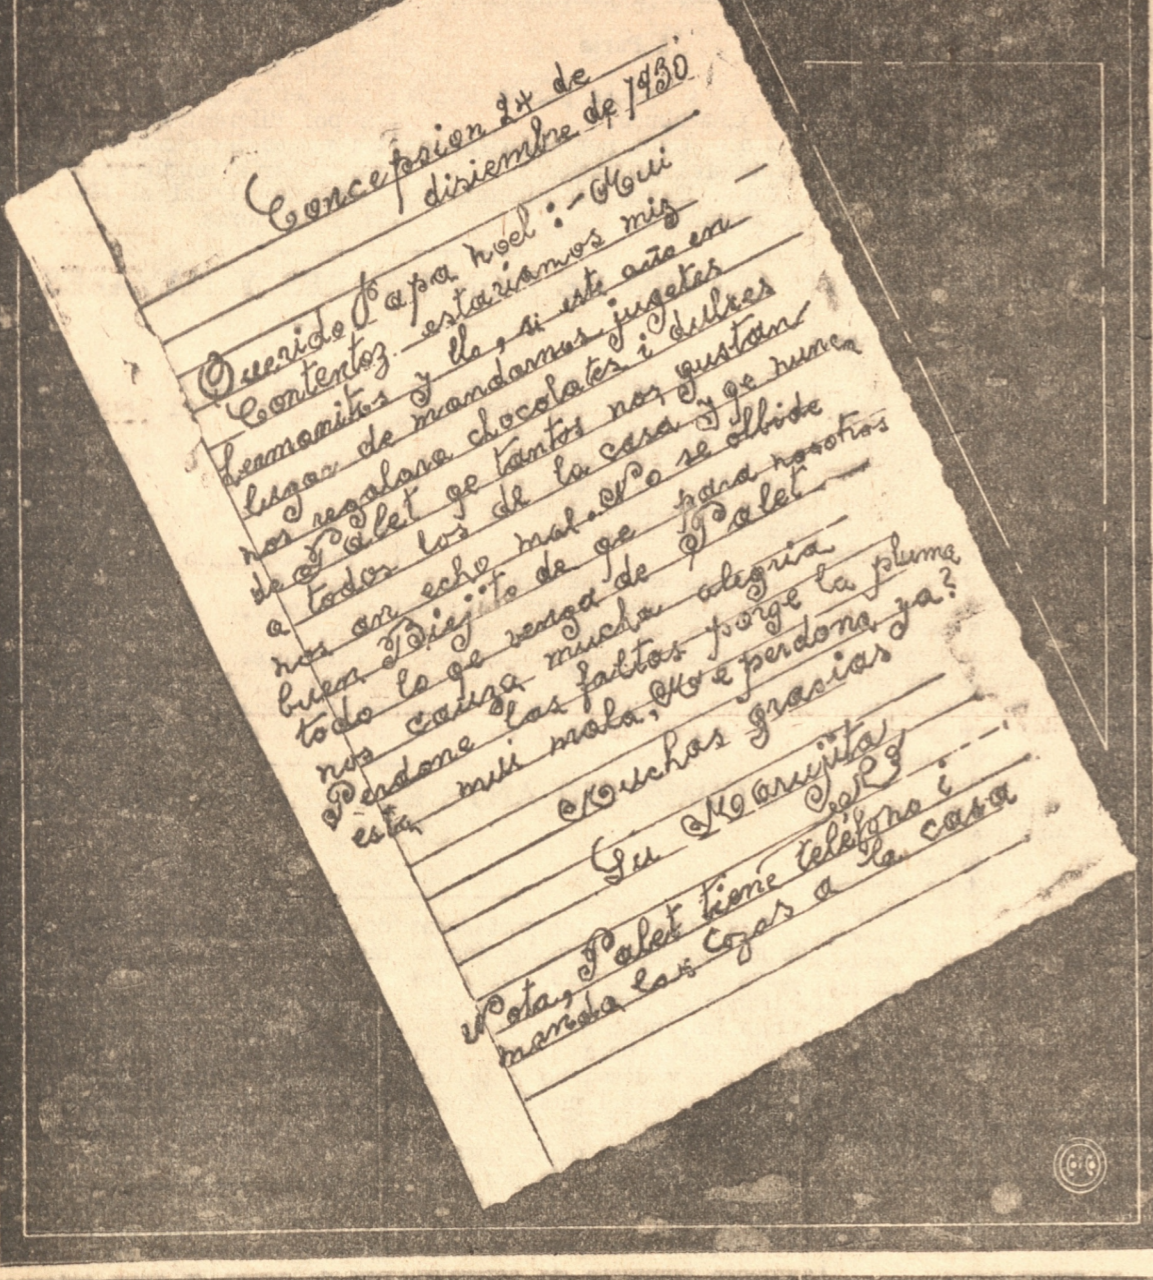 Concepsion 24 de
disiembre de 1930
Querido Papa noel :- Mui
Contentoz estariamos miz
hermanitos y llo, si este año en
lugar de mandarnos jugetes
nos regalara chocolates i dulses
de Palet qe tantos nos gustan
a todos los de la casa y qe nunca
nos an echo mal. No se olbide
buen Biejito de qe para nosotros
todo lo qe venga de Palet
nos cauza mucha alegria
Perdone las faltas porqe la pluma
está mui mala, Me perdona ya?
Muchas grasias
Su Marujita
Nota, Palet tiene teléfono i
manda laz cozas a la casa